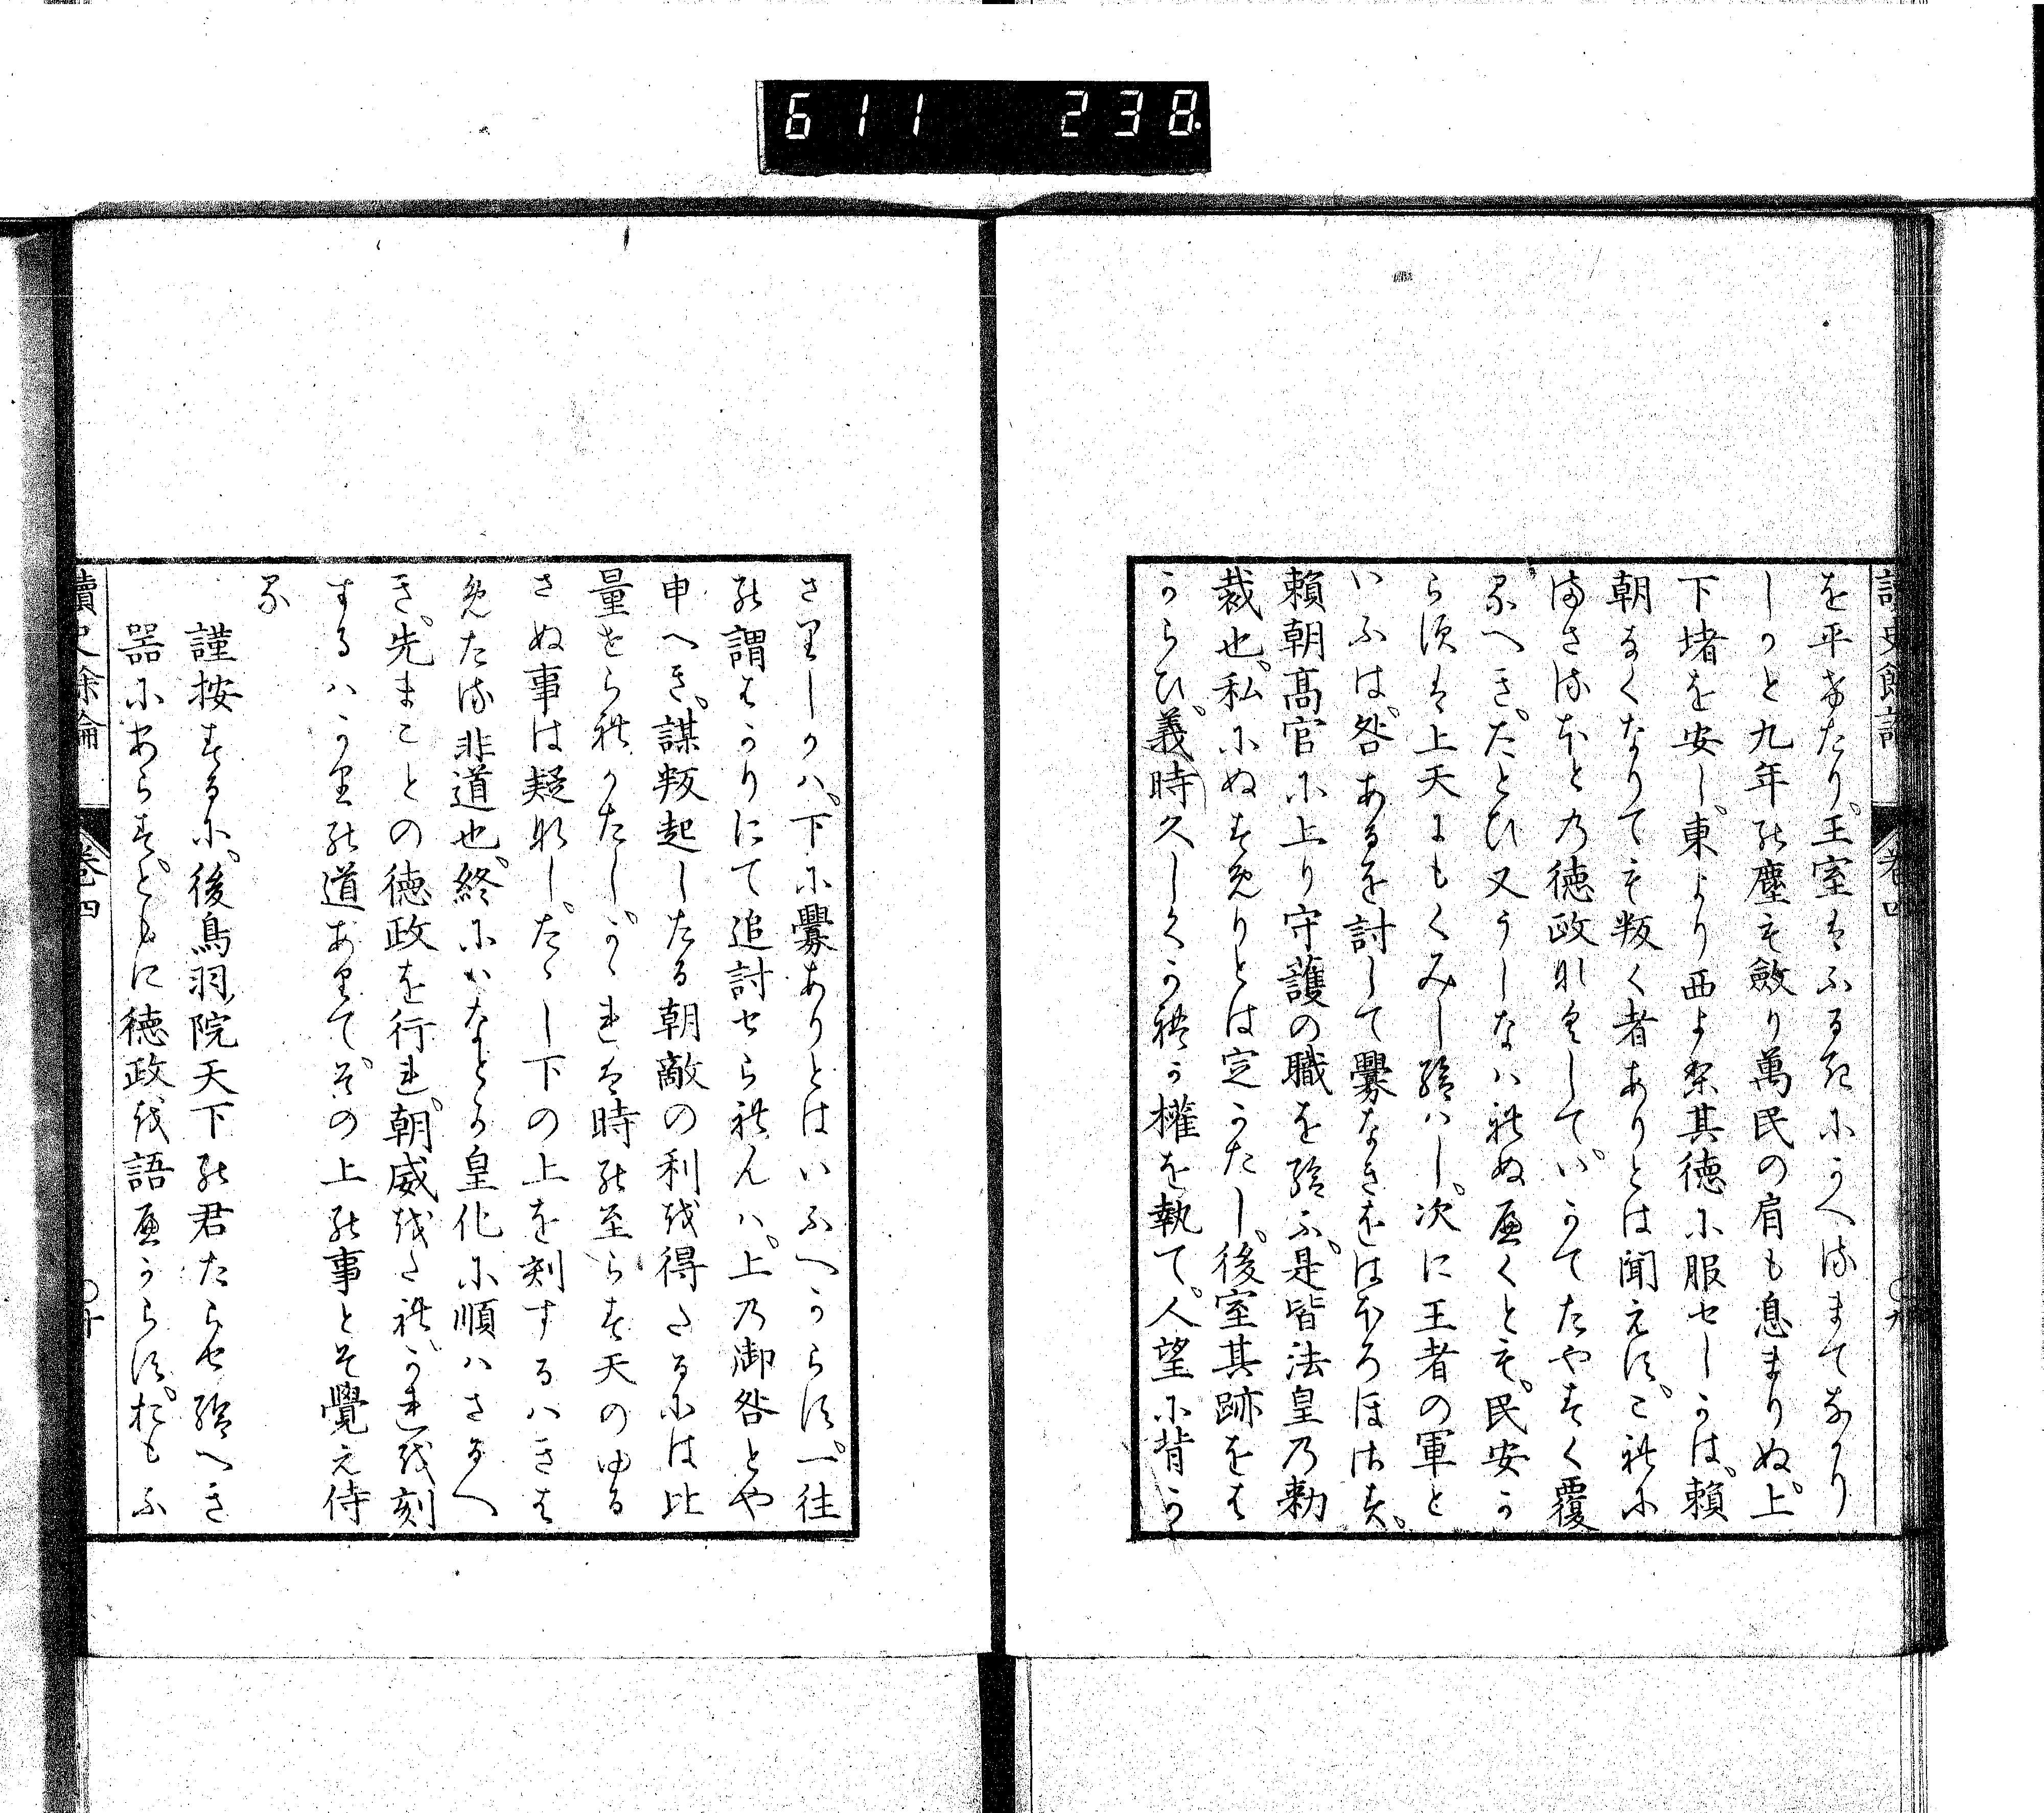 611 238.
讀史餘論 卷四 〇九
を平けたり。王室はふるきにかへるまてなかり
しかと九年の塵も斂り萬民の肩も息まりぬ。上
下堵を安し。東より西より其徳に服せしかは。頼
朝なくなりても叛く者ありとは聞えす。これに
まさるほとの徳政なくして。いかてたやすく覆
るへき。たとひ又うしなハれぬへくとも。民安か
らすは上天よもくみし給ハし。次に王者の軍と
いふは。咎あるを討して釁なきをはほろほさす。
頼朝高官に上り守護の職を給ふ。是皆法皇の勅
裁也。私にぬすめりとは定かたし。後室其跡をは
からひ。義時久しくかれか權を執て。人望に背か
さりしかハ。下に釁ありとはいふへからす。一往
の謂はかりにて追討せられんハ。上の御咎とや
申へき。謀叛起したる朝敵の利を得たるには比
量せられかたし。かゝれは時の至らす天のゆる
さぬ事は疑なし。たゝし下の上を剋するハきは
めたる非道也。終にハなとか皇化に順ハさるへ
き。先まことの徳政を行れ。朝威をたれ。かれを剋
するハかりの道ありて。その上の事とそ覺え侍
る
謹按するに。後鳥羽院天下の君たらせ給へき
器にあらす。ともに徳政を語へからす。おもふ
讀史餘論 卷四 〇十